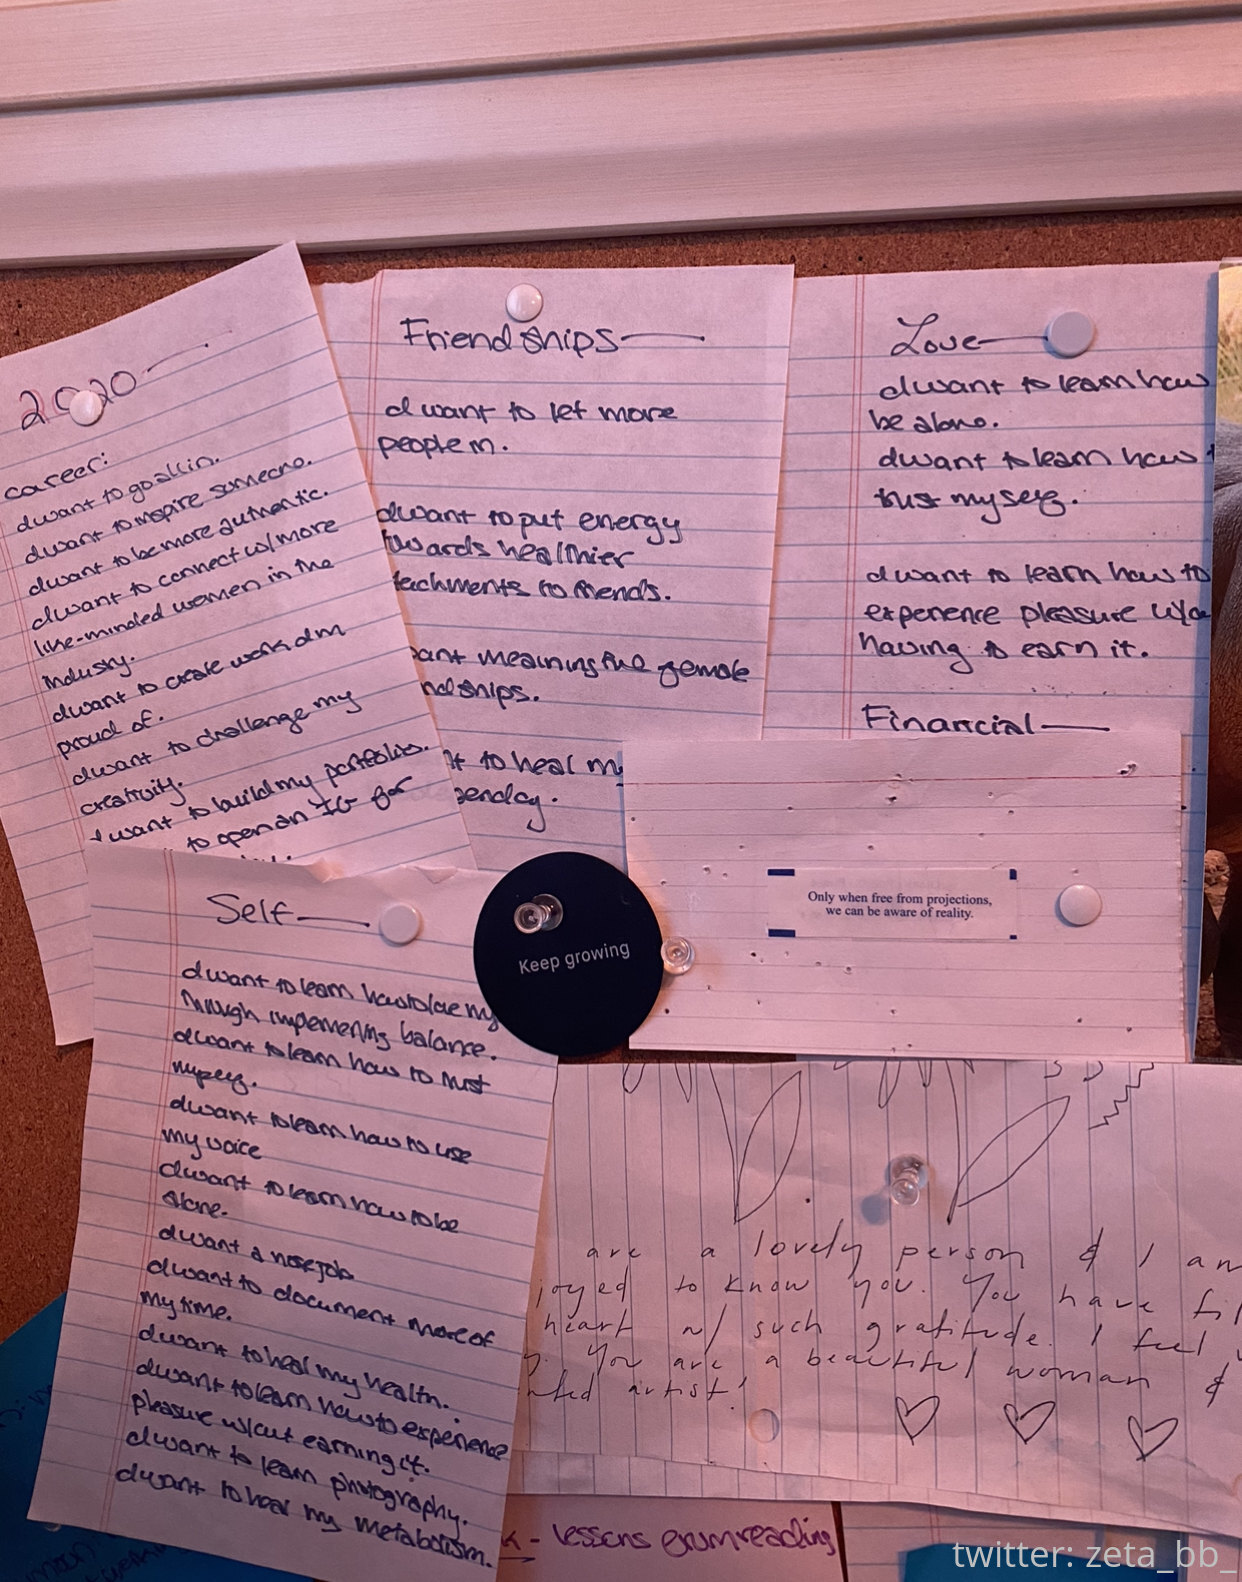 2020
career:
I want to go all in.
I want to inspire someone.
I want to be more authentic.
I want to connect w/ more
like-minded women in the
industry.
I want to create work I'm
proud of.
I want to challenge my
creativity.
I want to build my portfolio.
to open an IG for
Friendships
I want to let more
people in.
I want to put energy
towards healthier
tachments to friends.
ant meaningful female
ndships.
nt to heal my
pendcy.
Love
I want to learn how
be alone.
I want to learn how
trust myself.
I want to learn how to
experience pleasure w/o
having to earn it.
Financial
Only when free from projections,
we can be aware of reality.
Keep growing
Self
I want to learn how to love my
through implementing balance.
I want to learn how to trust
myself.
I want to learn how to use
my voice
I want to learn how to be
alone.
I want a nose job
I want to document more of
my time.
I want to heal my health.
I want to learn how to experience
pleasure w/out earning it.
I want to learn photography.
I want to heal my metabolism.
are a lovely person & I am
joyed to know you. You have fil
heart w/ such gratitude. I feel
You are a beautiful woman &
nted artist!
- lessons from reading
twitter: zeta_bb_